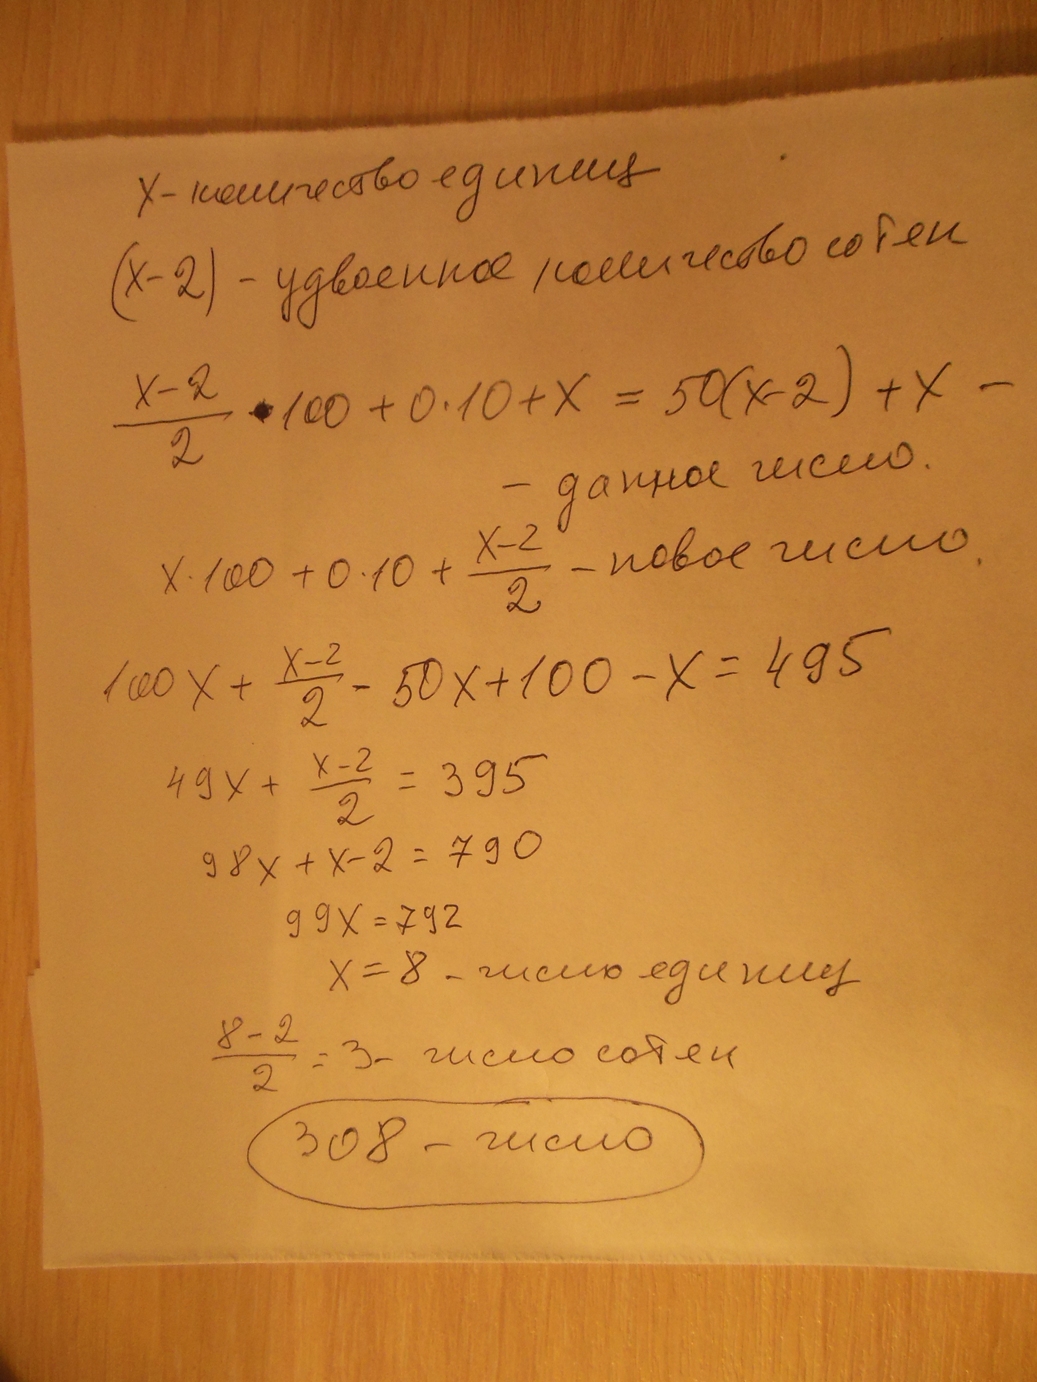 x - количество единиц
(x-2) - удвоенное количество сотен
\frac{x-2}{2} · 100 + 0·10 + x = 50(x-2) + x -
- данное число.
x·100 + 0·10 + \frac{x-2}{2} - новое число.
100x + \frac{x-2}{2} - 50x + 100 - x = 495
49x + \frac{x-2}{2} = 395
98x + x - 2 = 790
99x = 792
x = 8 - число единиц
\frac{8-2}{2} = 3 - число сотен
308 - число